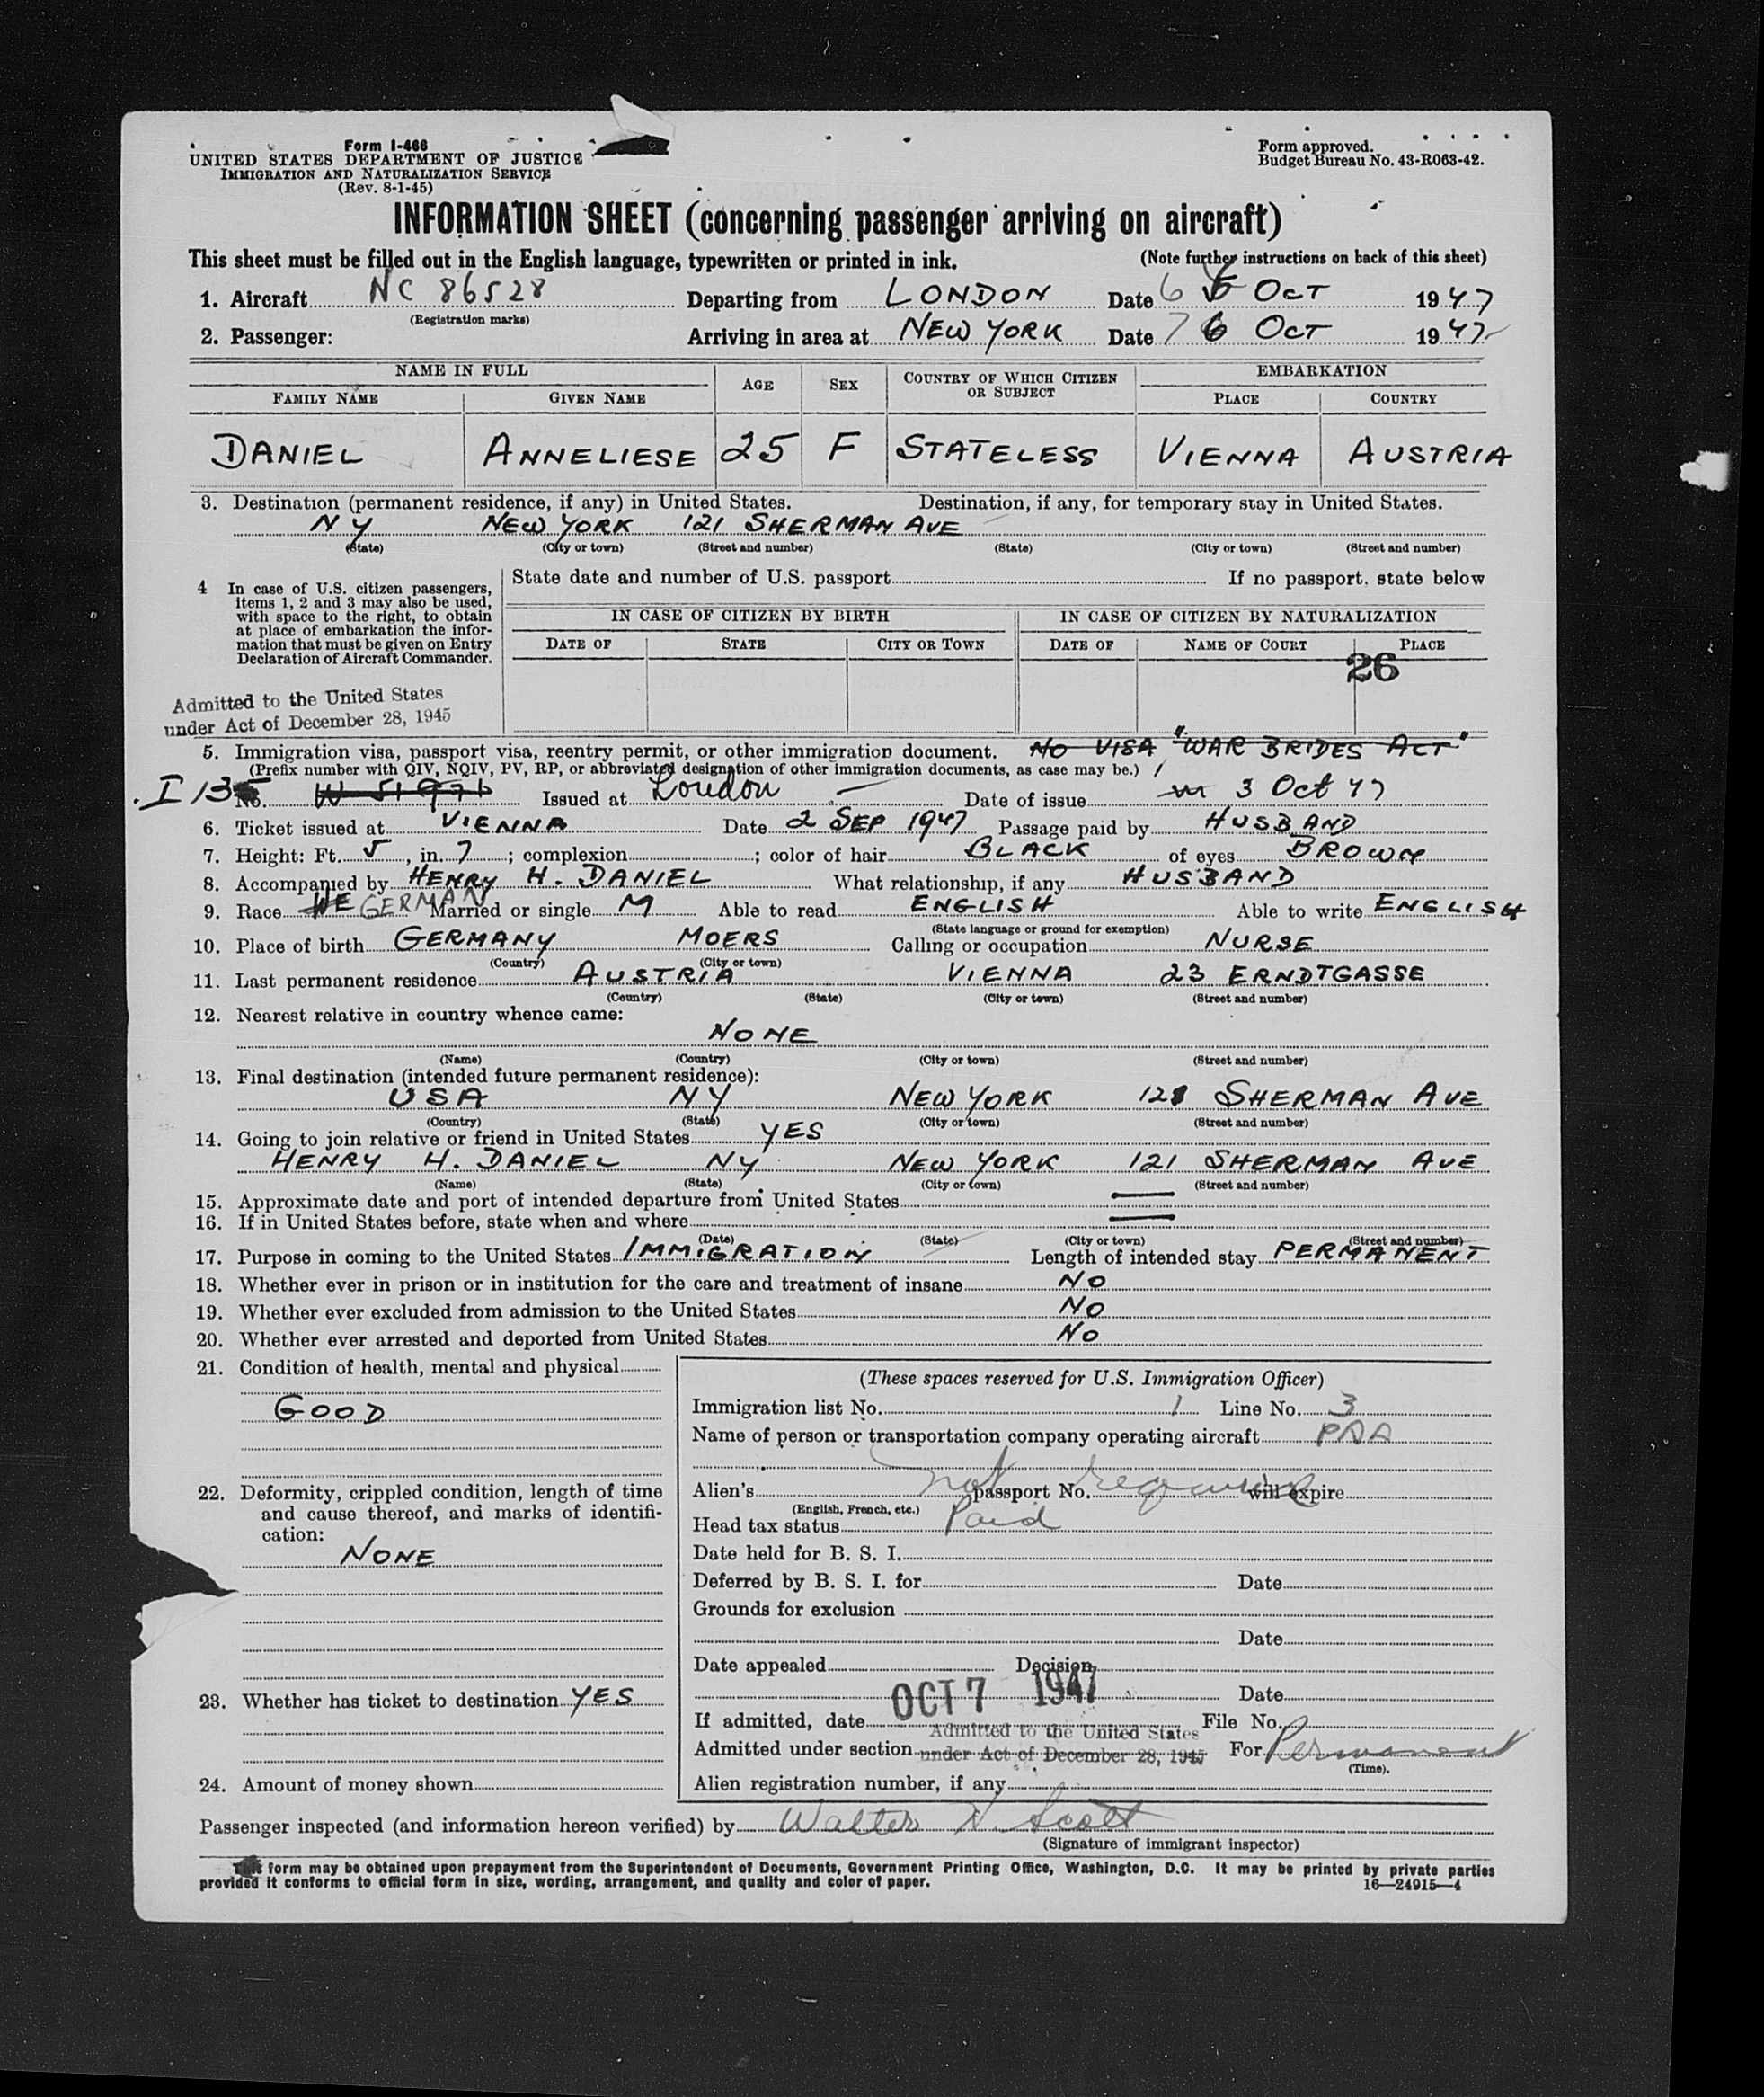 Form I-466
UNITED STATES DEPARTMENT OF JUSTICE
IMMIGRATION AND NATURALIZATION SERVICE
(Rev. 8-1-45)
Form approved.
Budget Bureau No. 43-R063-42.
INFORMATION SHEET (concerning passenger arriving on aircraft)
This sheet must be filled out in the English language, typewritten or printed in ink. (Note further instructions on back of this sheet)
1. Aircraft NC 86528 Departing from LONDON Date 6 OCT 1947
(Registration marks)
2. Passenger: Arriving in area at NEW YORK Date 7 6 OCT 1947
NAME IN FULL AGE SEX COUNTRY OF WHICH CITIZEN OR SUBJECT EMBARKATION
FAMILY NAME GIVEN NAME PLACE COUNTRY
DANIEL ANNELIESE 25 F STATELESS VIENNA AUSTRIA
3. Destination (permanent residence, if any) in United States. Destination, if any, for temporary stay in United States.
NY NEW YORK 121 SHERMAN AVE
(State) (City or town) (Street and number) (State) (City or town) (Street and number)
4 In case of U.S. citizen passengers, items 1, 2 and 3 may also be used, with space to the right, to obtain at place of embarkation the information that must be given on Entry Declaration of Aircraft Commander.
State date and number of U.S. passport If no passport, state below
IN CASE OF CITIZEN BY BIRTH IN CASE OF CITIZEN BY NATURALIZATION
DATE OF STATE CITY OR TOWN DATE OF NAME OF COURT PLACE
26
Admitted to the United States
under Act of December 28, 1945
5. Immigration visa, passport visa, reentry permit, or other immigration document. NO VISA "WAR BRIDES ACT"
(Prefix number with QIV, NQIV, PV, RP, or abbreviated designation of other immigration documents, as case may be.)
I 13 No. Issued at London Date of issue 3 Oct 47
6. Ticket issued at VIENNA Date 2 SEP 1947 Passage paid by HUSBAND
7. Height: Ft. 5, in. 7; complexion ; color of hair BLACK of eyes BROWN
8. Accompanied by HENRY H. DANIEL What relationship, if any HUSBAND
9. Race GERMAN Married or single M Able to read ENGLISH Able to write ENGLISH
(State language or ground for exemption)
10. Place of birth GERMANY MOERS Calling or occupation NURSE
(Country) (City or town)
11. Last permanent residence AUSTRIA VIENNA 23 ERNDTGASSE
(Country) (State) (City or town) (Street and number)
12. Nearest relative in country whence came:
NONE
(Name) (Country) (City or town) (Street and number)
13. Final destination (intended future permanent residence):
USA NY NEW YORK 121 SHERMAN AVE
(Country) (State) (City or town) (Street and number)
14. Going to join relative or friend in United States YES
HENRY H. DANIEL NY NEW YORK 121 SHERMAN AVE
(Name) (State) (City or town) (Street and number)
15. Approximate date and port of intended departure from United States —
16. If in United States before, state when and where —
(Date) (State) (City or town) (Street and number)
17. Purpose in coming to the United States IMMIGRATION Length of intended stay PERMANENT
18. Whether ever in prison or in institution for the care and treatment of insane NO
19. Whether ever excluded from admission to the United States NO
20. Whether ever arrested and deported from United States NO
21. Condition of health, mental and physical
GOOD
22. Deformity, crippled condition, length of time and cause thereof, and marks of identification:
NONE
23. Whether has ticket to destination YES
24. Amount of money shown
(These spaces reserved for U.S. Immigration Officer)
Immigration list No. 1 Line No. 3
Name of person or transportation company operating aircraft PAA
Alien's not passport No. required will expire
(English, French, etc.)
Head tax status Paid
Date held for B. S. I.
Deferred by B. S. I. for Date
Grounds for exclusion
Date
Date appealed Decision
Date
If admitted, date OCT 7 1947 File No.
Admitted to the United States
Admitted under section under Act of December 28, 1945 For Permanent
(Time).
Alien registration number, if any
Passenger inspected (and information hereon verified) by Walter Scott
(Signature of immigrant inspector)
This form may be obtained upon prepayment from the Superintendent of Documents, Government Printing Office, Washington, D.C. It may be printed by private parties
provided it conforms to official form in size, wording, arrangement, and quality and color of paper.
16—24915-4